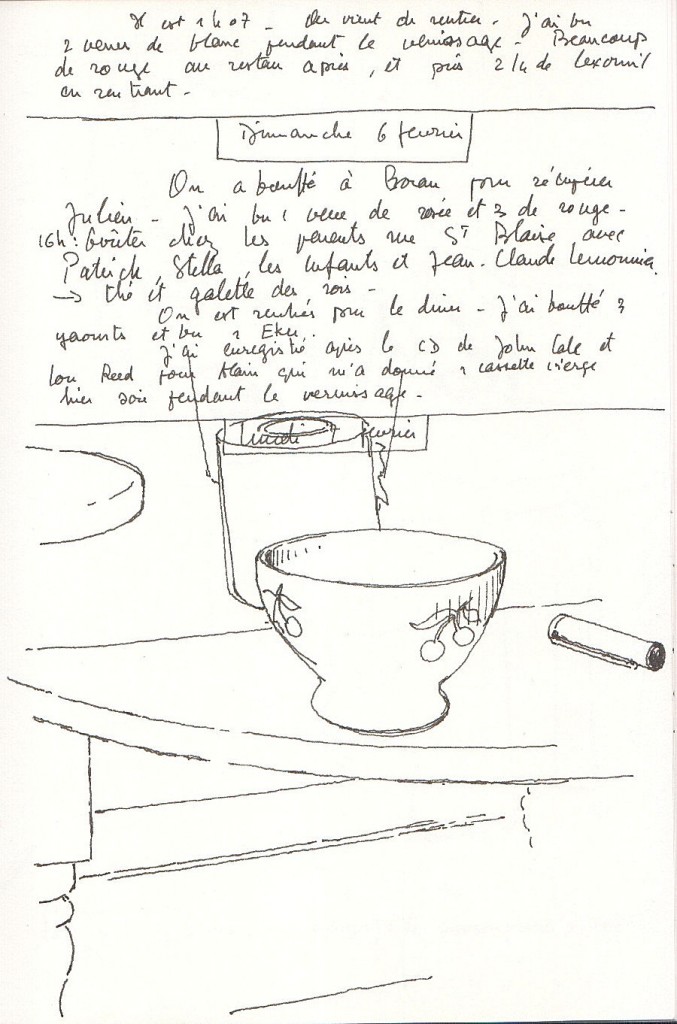 Il est 1h07 - On vient de rentrer - J'ai bu
2 verres de blanc pendant le vernissage - Beaucoup
de rouge au restau après, et pris 2 1/4 de Lexomil
en rentrant -
Dimanche 6 février
On a bouffé à Boran pour récupérer
Julien - J'ai bu 1 verre de rosée et 3 de rouge -
16h : Goûter chez les parents rue St Blaise avec
Patrick, Stella, les enfants et Jean-Claude Lemonnier
→ thé et galette des rois -
On est rentrés pour le diner - J'ai bouffé 3
yaourts et bu 2 Eku.
J'ai enregistré après le CD de John Cale et
Lou Reed pour Alain qui m'a donné 1 cassette vierge
hier soir pendant le vernissage -
Lundi 7 février